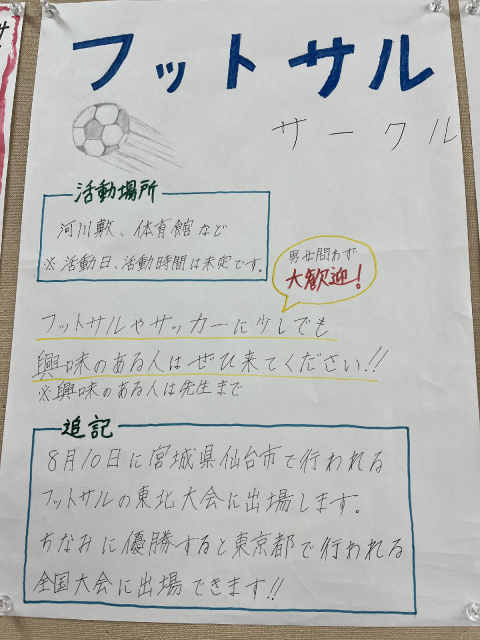 フットサル
サークル
活動場所
河川敷、体育館など
※活動日、活動時間は未定です。
男女問わず
大歓迎!
フットサルやサッカーに少しでも
興味のある人はぜひ来てください!!
※興味のある人は先生まで
追記
8月10日に宮城県仙台市で行われる
フットサルの東北大会に出場します。
ちなみに優勝すると東京都で行われる
全国大会に出場できます!!